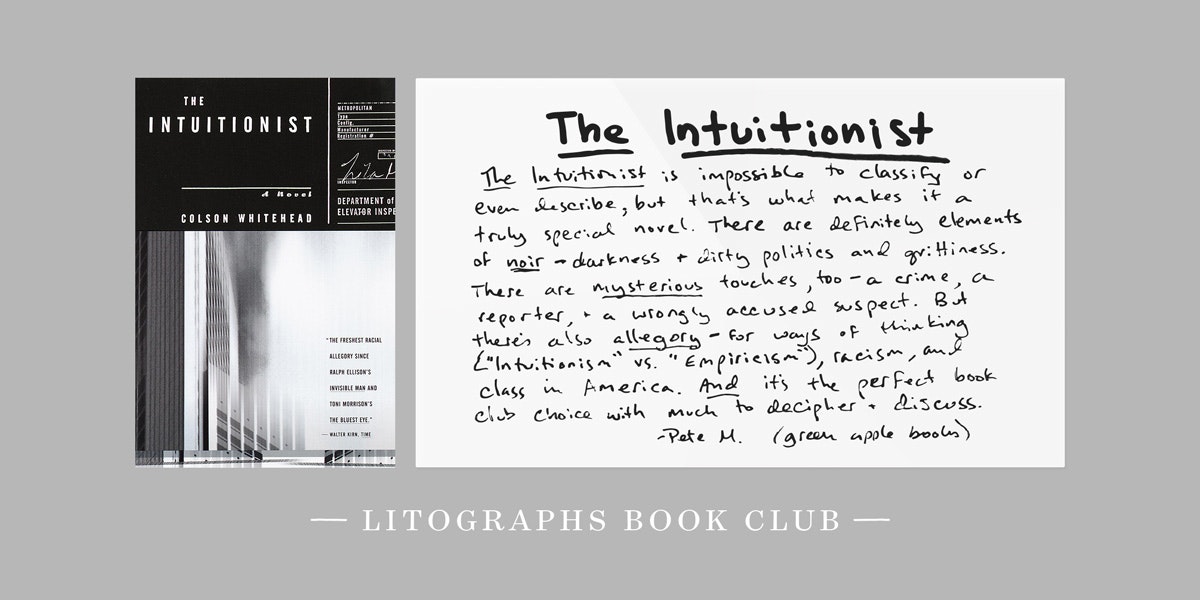 THE
INTUITIONIST
A Novel
COLSON WHITEHEAD
METROPOLITAN
Type
Config.
Manufacturer
Registration #
INSPECTOR
DEPARTMENT of
ELEVATOR INSPE
"THE FRESHEST RACIAL
ALLEGORY SINCE
RALPH ELLISON'S
INVISIBLE MAN AND
TONI MORRISON'S
THE BLUEST EYE."
— WALTER KIRN, TIME
The Intuitionist
The Intuitionist is impossible to classify or
even describe, but that's what makes it a
truly special novel. There are definitely elements
of noir - darkness + dirty politics and grittiness.
There are mysterious touches, too - a crime, a
reporter, + a wrongly accused suspect. But
there's also allegory - for ways of thinking
("Intuitionism" vs. "Empiricism"), racism, and
class in America. And it's the perfect book
club choice with much to decipher + discuss.
-Pete M. (green apple books)
— LITOGRAPHS BOOK CLUB —